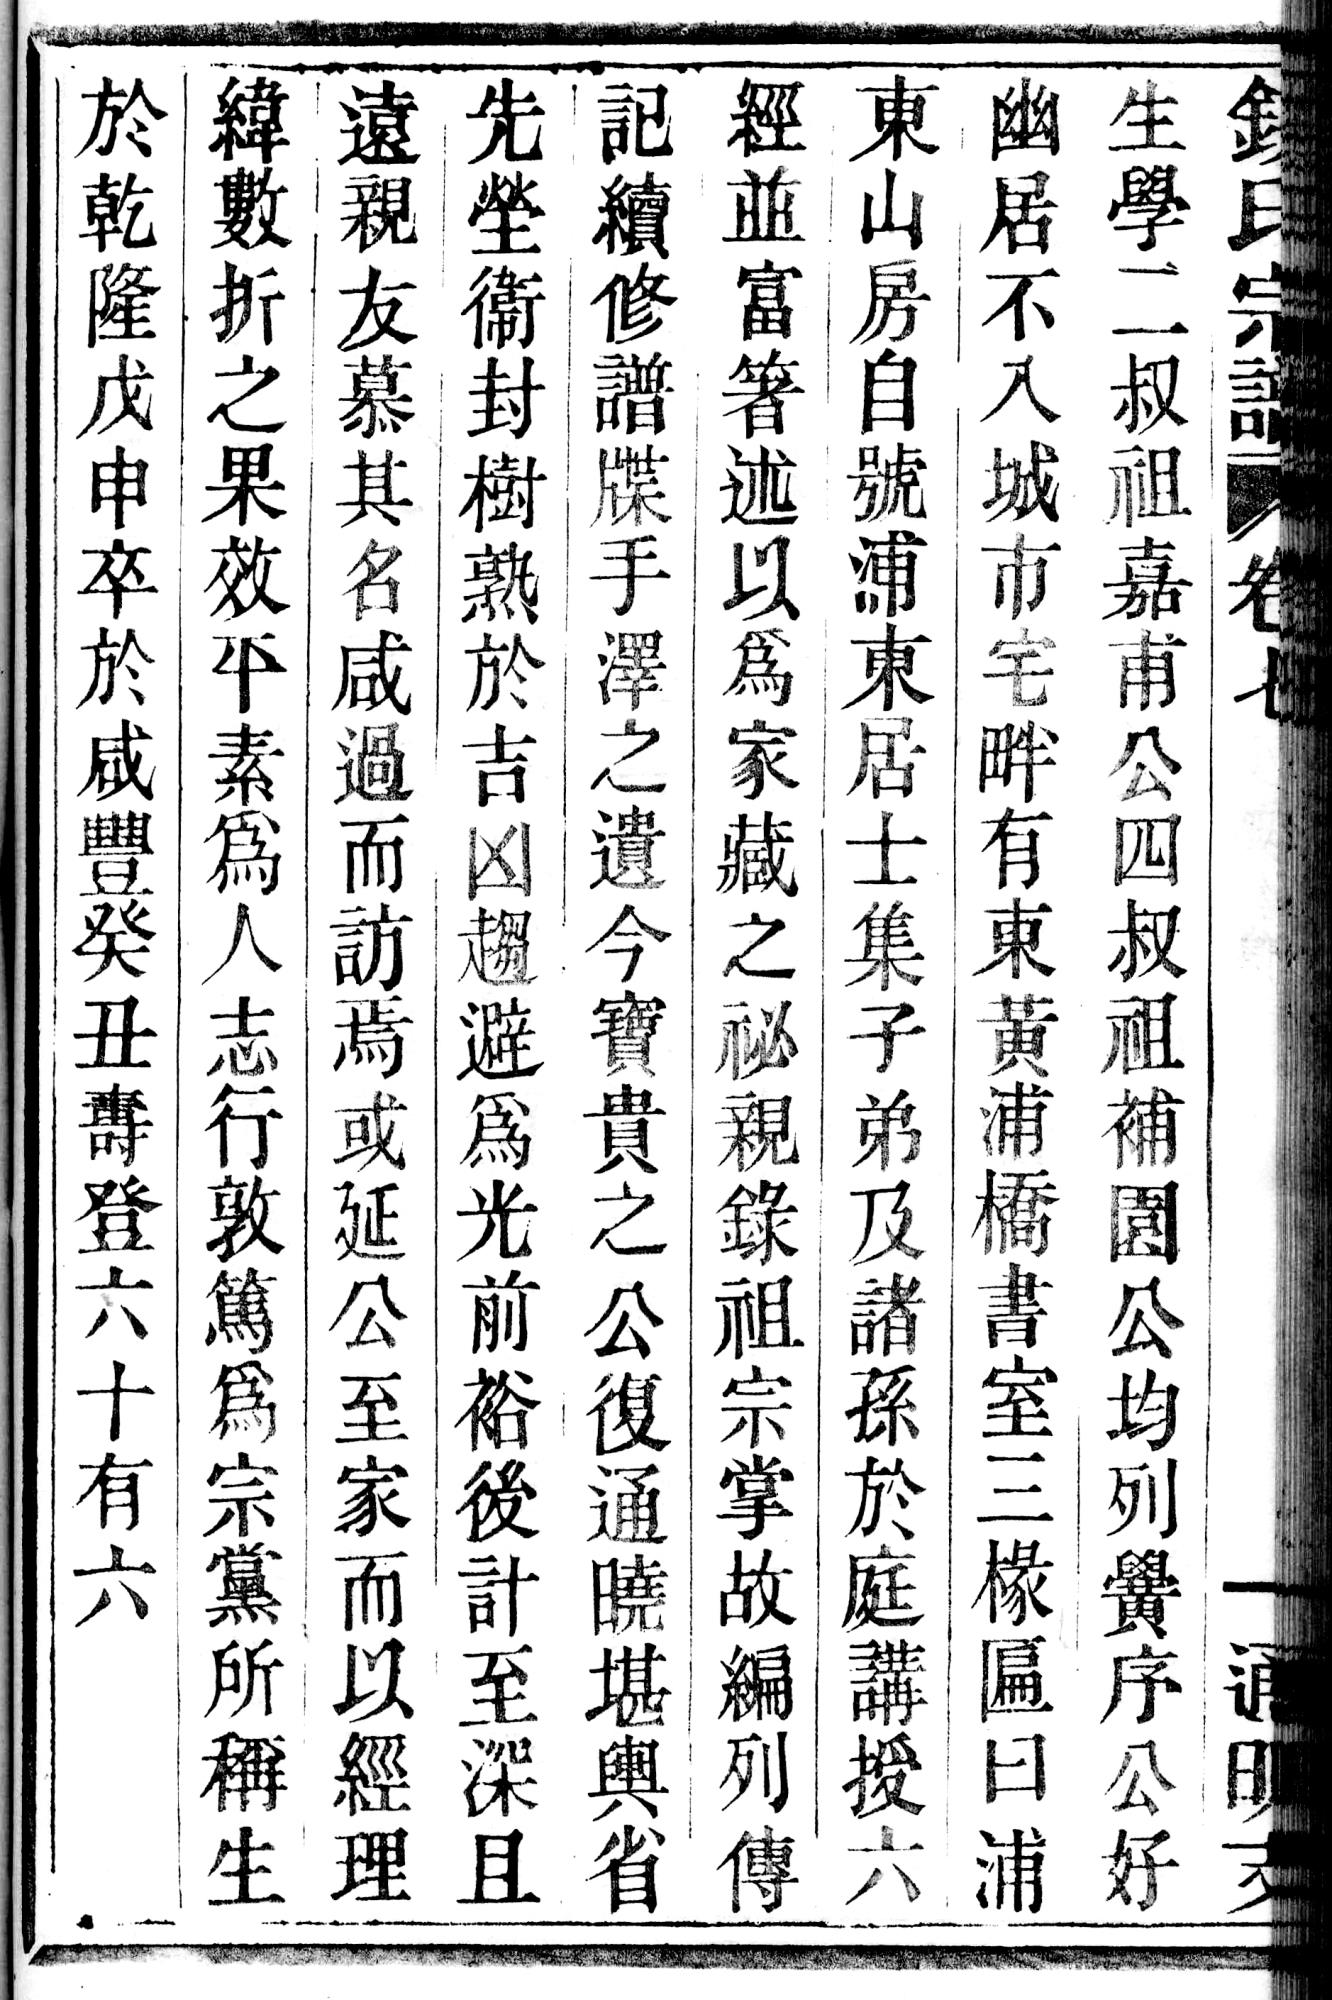 氏宗譜 卷七
生學二叔祖嘉甫公四叔祖補園公均列黌序公好
幽居不入城市宅畔有東黃浦橋書室三椽匾曰浦
東山房自號浦東居士集子弟及諸孫於庭講授六
經並富箸述以為家藏之祕親錄祖宗掌故編列傳
記續修譜牒手澤之遺今寶貴之公復通曉堪輿省
先塋衞封樹熟於吉凶趨避為光前裕後計至深且
遠親友慕其名咸過而訪焉或延公至家而以經理
緯數折之果效平素為人志行敦篤為宗黨所稱生
於乾隆戊申卒於咸豐癸丑壽登六十有六